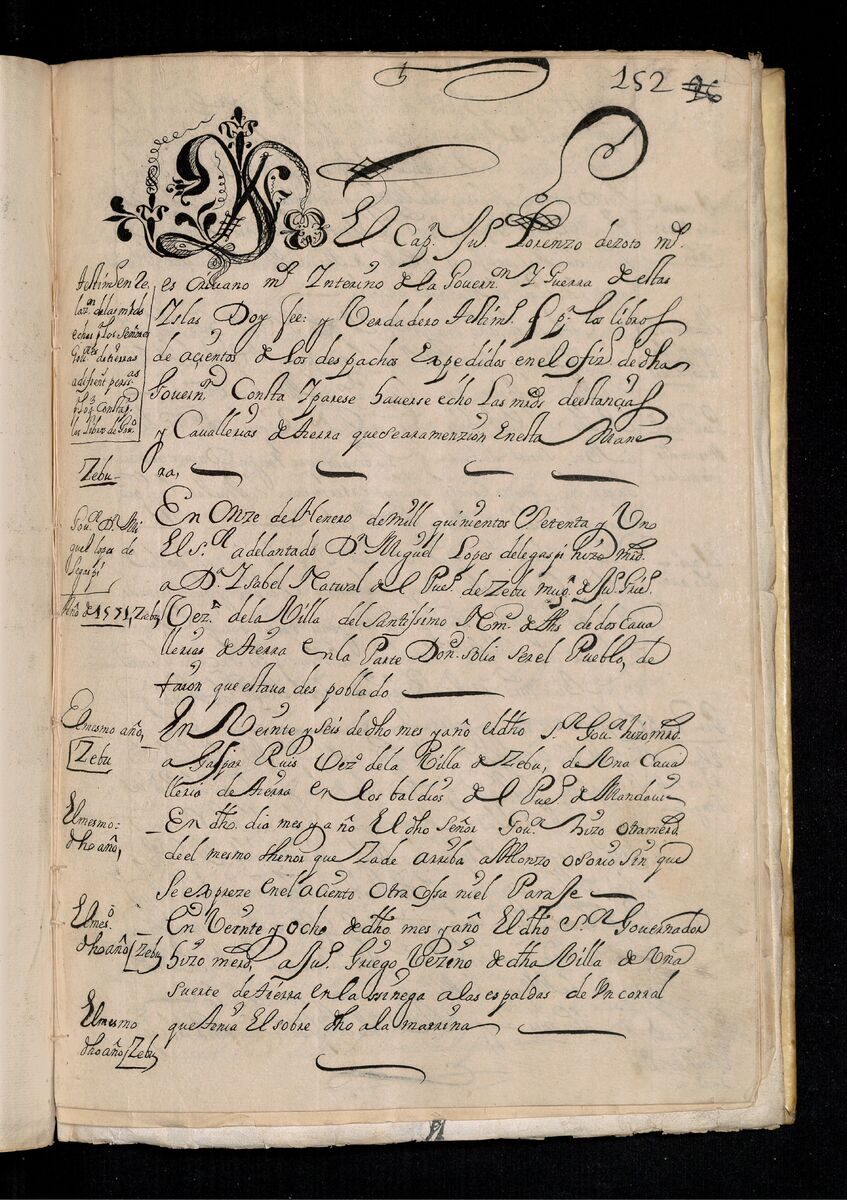 152 96
El Capn. Jun. Lorenzo de zoto mr.
es crivano mr. Ynterino de la Governn. Y Guerra de estas
Yslas Doy fee: y Verdadero testimo. q pr. los libros
de açientos de los despachos Expedidos en el ofizo. de dha
Governn. Consta Y parese haverse echo Las mrds de estançias
y Cavallerias de tierra que se ara menzion En esta Mane
ra,
testimo. en Re
lazon. de las mrds
echas p Los Señores
Gou.res de tierras
a difrent. persas
p Lo q Constap.
los libros de Gouo.
Zebu
En Onze de Henero de mill quinientos Setenta y Uno
El Sr. adelantado Dn. Miguel Lopes de legaspi hizo mrd.
a Da. Ysabel Natural de el Pueo. de Zebu mugr. de Jun. Grieo.
Vezo. de la Villa del Santissimo Nme. de Jhs de dos Cava
llerias de tierra en la Parte Donde. solia ser el Pueblo, de
taron que estava des poblado
Gour. Dn. Mi
guel lopes de
Legaspi
Año de 1571, Zebu,
En Veinte y seis de dho mes y año el dho Sr. Gour. hizo mrd.
a Gaspar Ruis Vezo. de la Villa de Zebu, de Una Cava
lleria de tierra en los baldios de el Pueo. de Mandaui
El mesmo año,
Zebu
En dho. dia mes y año El dho Señor Gour. hizo otra merd.
de el mesmo thenor que La de arriba a Alonzo osorio sin que
se expreze en el açiento otra Cossa ni el Paraje
El mesmo:
dho año,
En Veinte y ocho de dho. mes y año El dho Sr. Governador
hizo merd. a Jun. Griego Vezino de dha Villa de Una
suerte de tierra en la sienega a las espaldas de Un corral
que tenia El sobre dho a la marina
El meso.
dho año Zebu
El mesmo
dho año Zebu